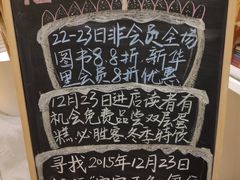 22-23日非会员全场
图书8.8折.新华
里会员8折优惠
12月23日进店读者有
机会免费品尝双层蛋
糕必胜客冬季特饮
寻找2015年12月23日